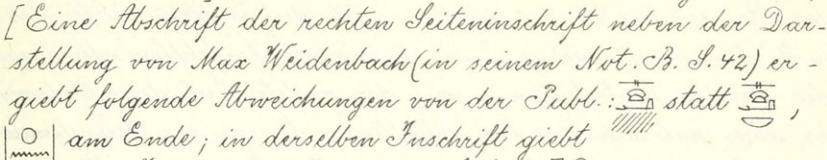 [Eine Abschrift der rechten Seiteninschrift neben der Dar-
stellung von Max Weidenbach (in seinem Not. B. S. 42) er-
giebt folgende Abweichungen von der Publ.: statt ,
am Ende; in derselben Inschrift giebt